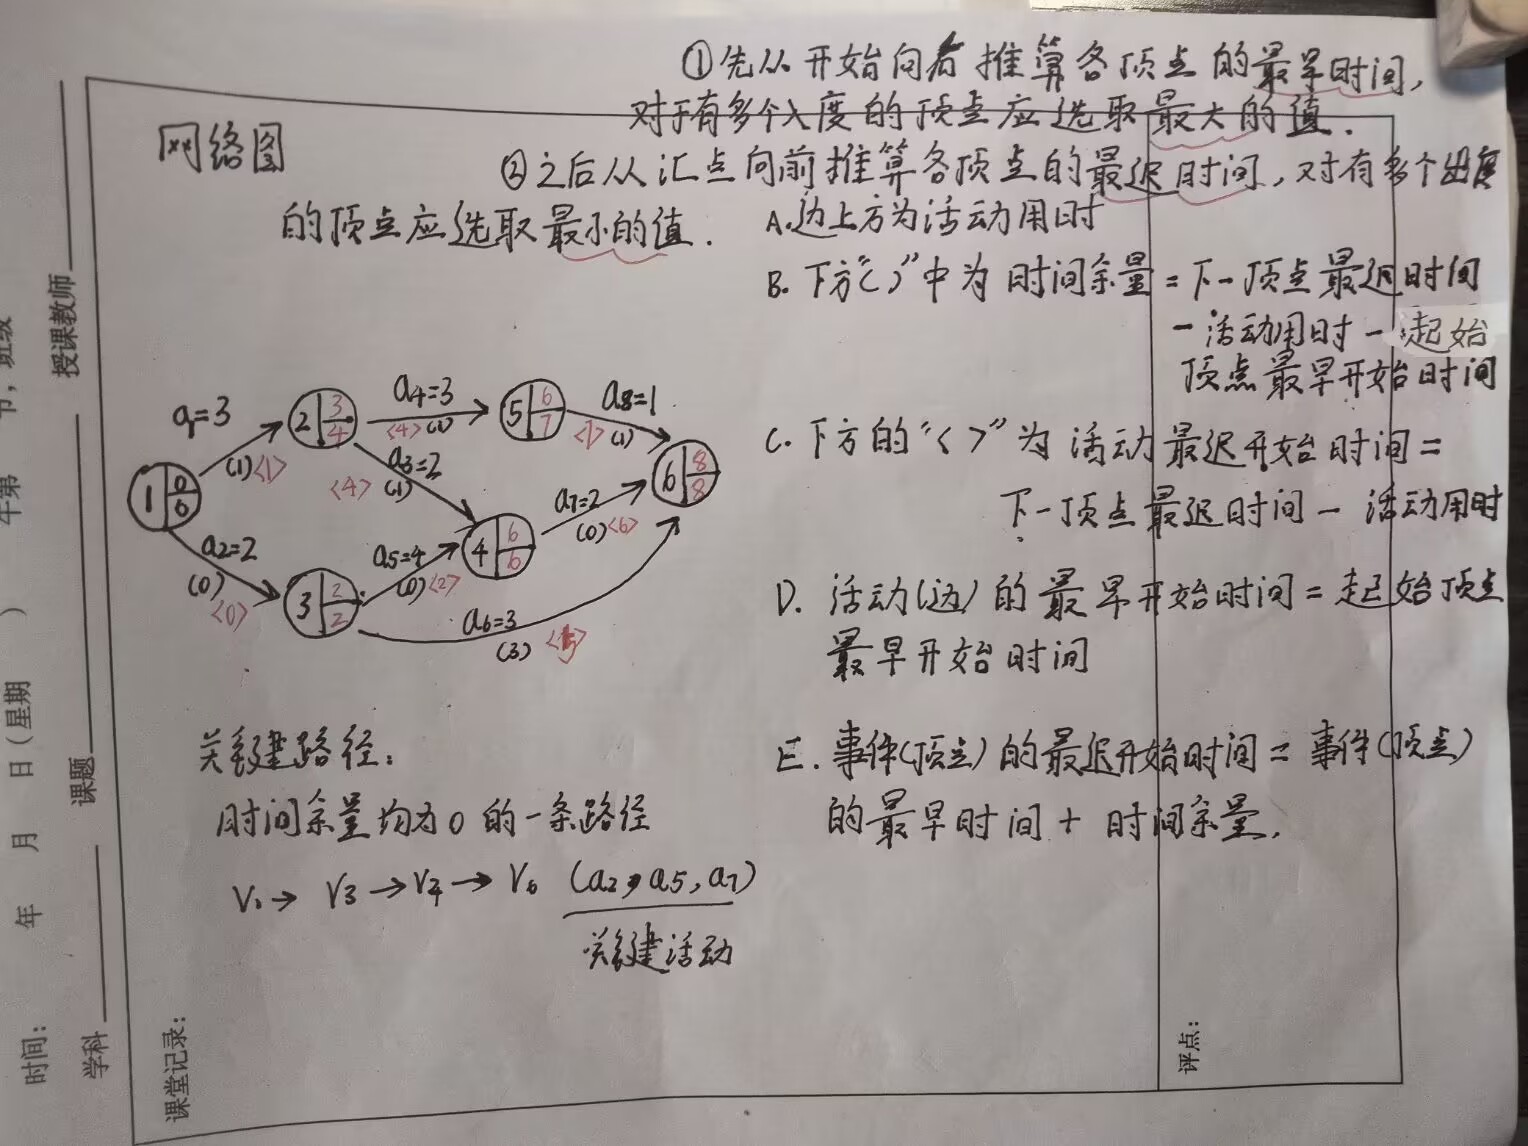 ①先从开始向后推算各顶点的最早时间,
对于有多个入度的顶点应选取最大的值.
网络图
②之后从汇点向前推算各顶点的最迟时间,对有多个出度
的顶点应选取最小的值.
A.边上方为活动用时
B.下方"( )"中为时间余量=下一顶点最迟时间
-活动用时-起始
顶点最早开始时间
C.下方的"< >"为活动最迟开始时间=
下一顶点最迟时间-活动用时
D.活动(边)的最早开始时间=起始顶点
最早开始时间
E.事件(顶点)的最迟开始时间=事件(顶点)
的最早时间+时间余量.
a₁=3
(1)<1>
2 3 4
a4=3
<4>(1)
5 6 7
a8=1
<7>(1)
a3=2
<4>(1)
1 0 0
6 8 8
a7=2
(0)<6>
a2=2
(0)
<0>
a5=4
(0)<2>
4 6 6
3 2 2
a6=3
(3)
关键路径:
时间余量均为0的一条路径
V₁→V3→V4→V6 (a2,a5,a7)
关键活动
时间: 年 月 日(星期 ) 午第 节,班级
学科 课题 授课教师
课堂记录:
评点: